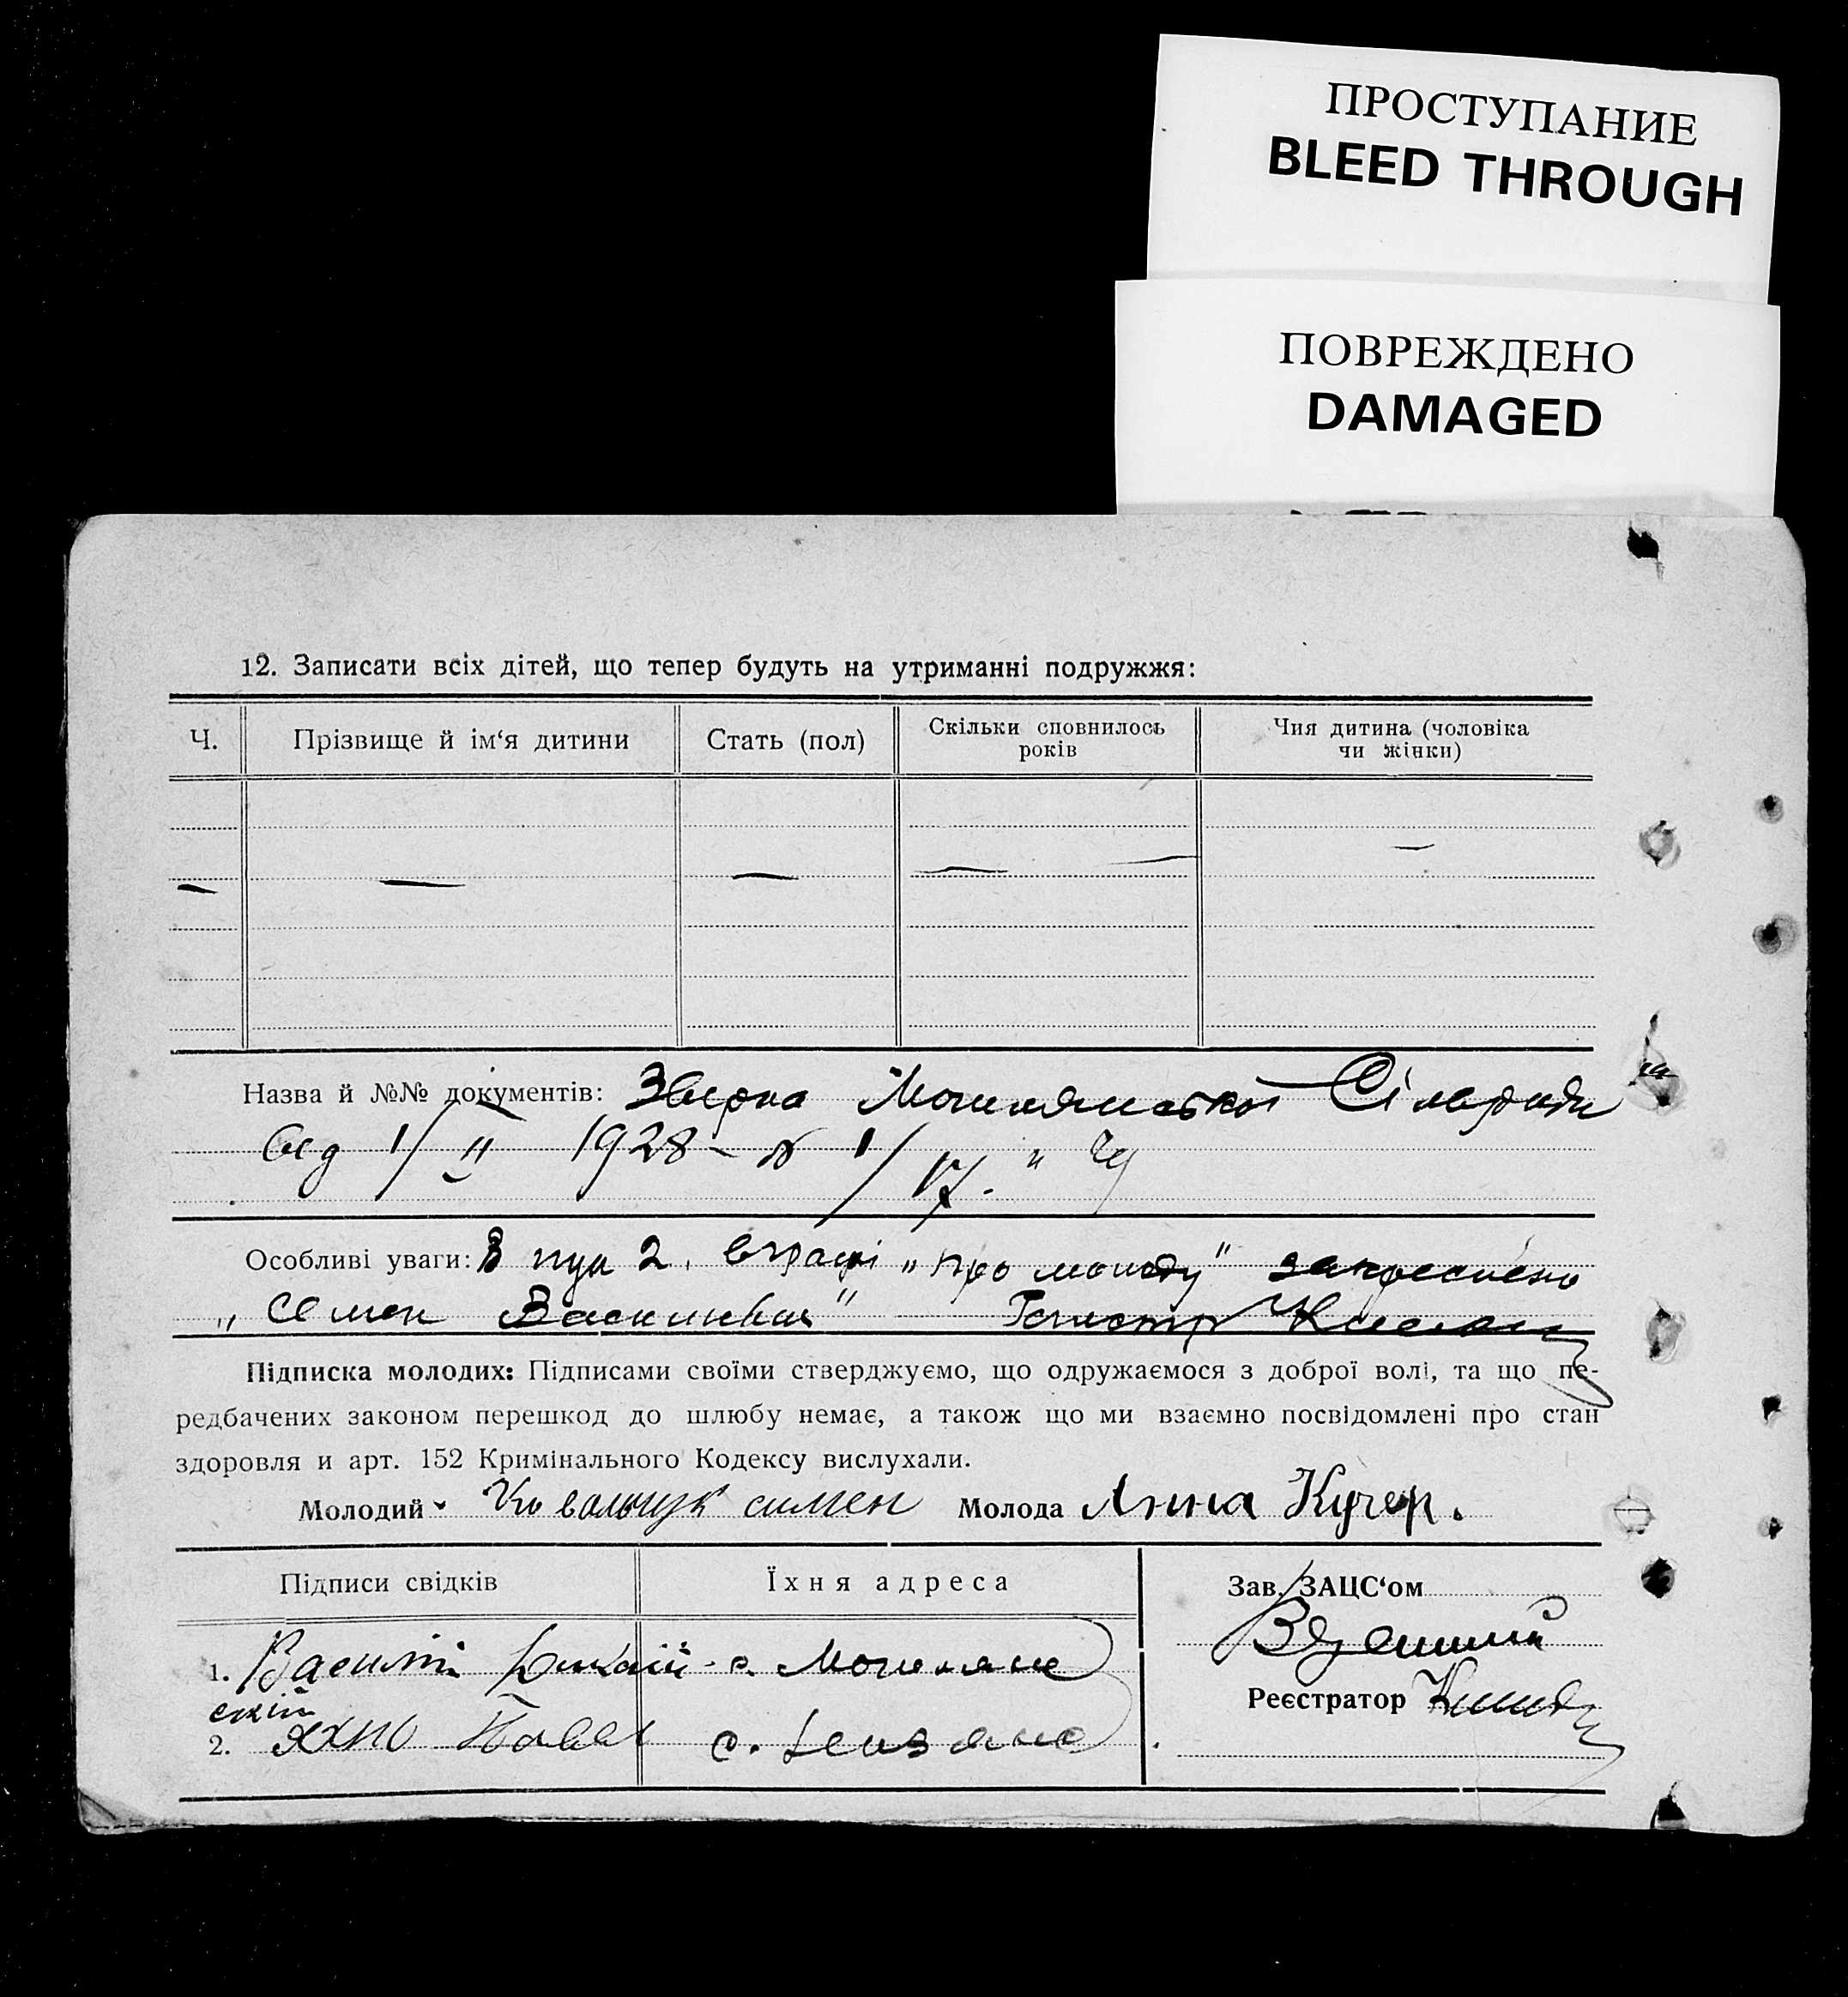 ПРОСТУПАНИЕ
BLEED THROUGH
ПОВРЕЖДЕНО
DAMAGED
12. Записати всіх дітей, що тепер будуть на утриманні подружжя:
Ч.
Прізвище й ім‘я дитини
Стать (пол)
Скільки сповнилось
років
Чия дитина (чоловіка
чи жінки)
— — — — — —
Назва й №№ документів: Сільради
від 1/II 1928
Особливі уваги: В пун 2. в графі „про молоду" закреслено
„Семен
Підписка молодих: Підписами своїми стверджуємо, що одружаємося з доброї волі, та що пе-
редбачених законом перешкод до шлюбу немає, а також що ми взаємно посвідомлені про стан
здоровля и арт. 152 Кримінального Кодексу вислухали.
Молодий Ковальчук симен Молода Анна Кучер.
Підписи свідків
Їхня адреса
Зав. ЗАЦС‘ом
1. с.
Реєстратор
2. Павел с.